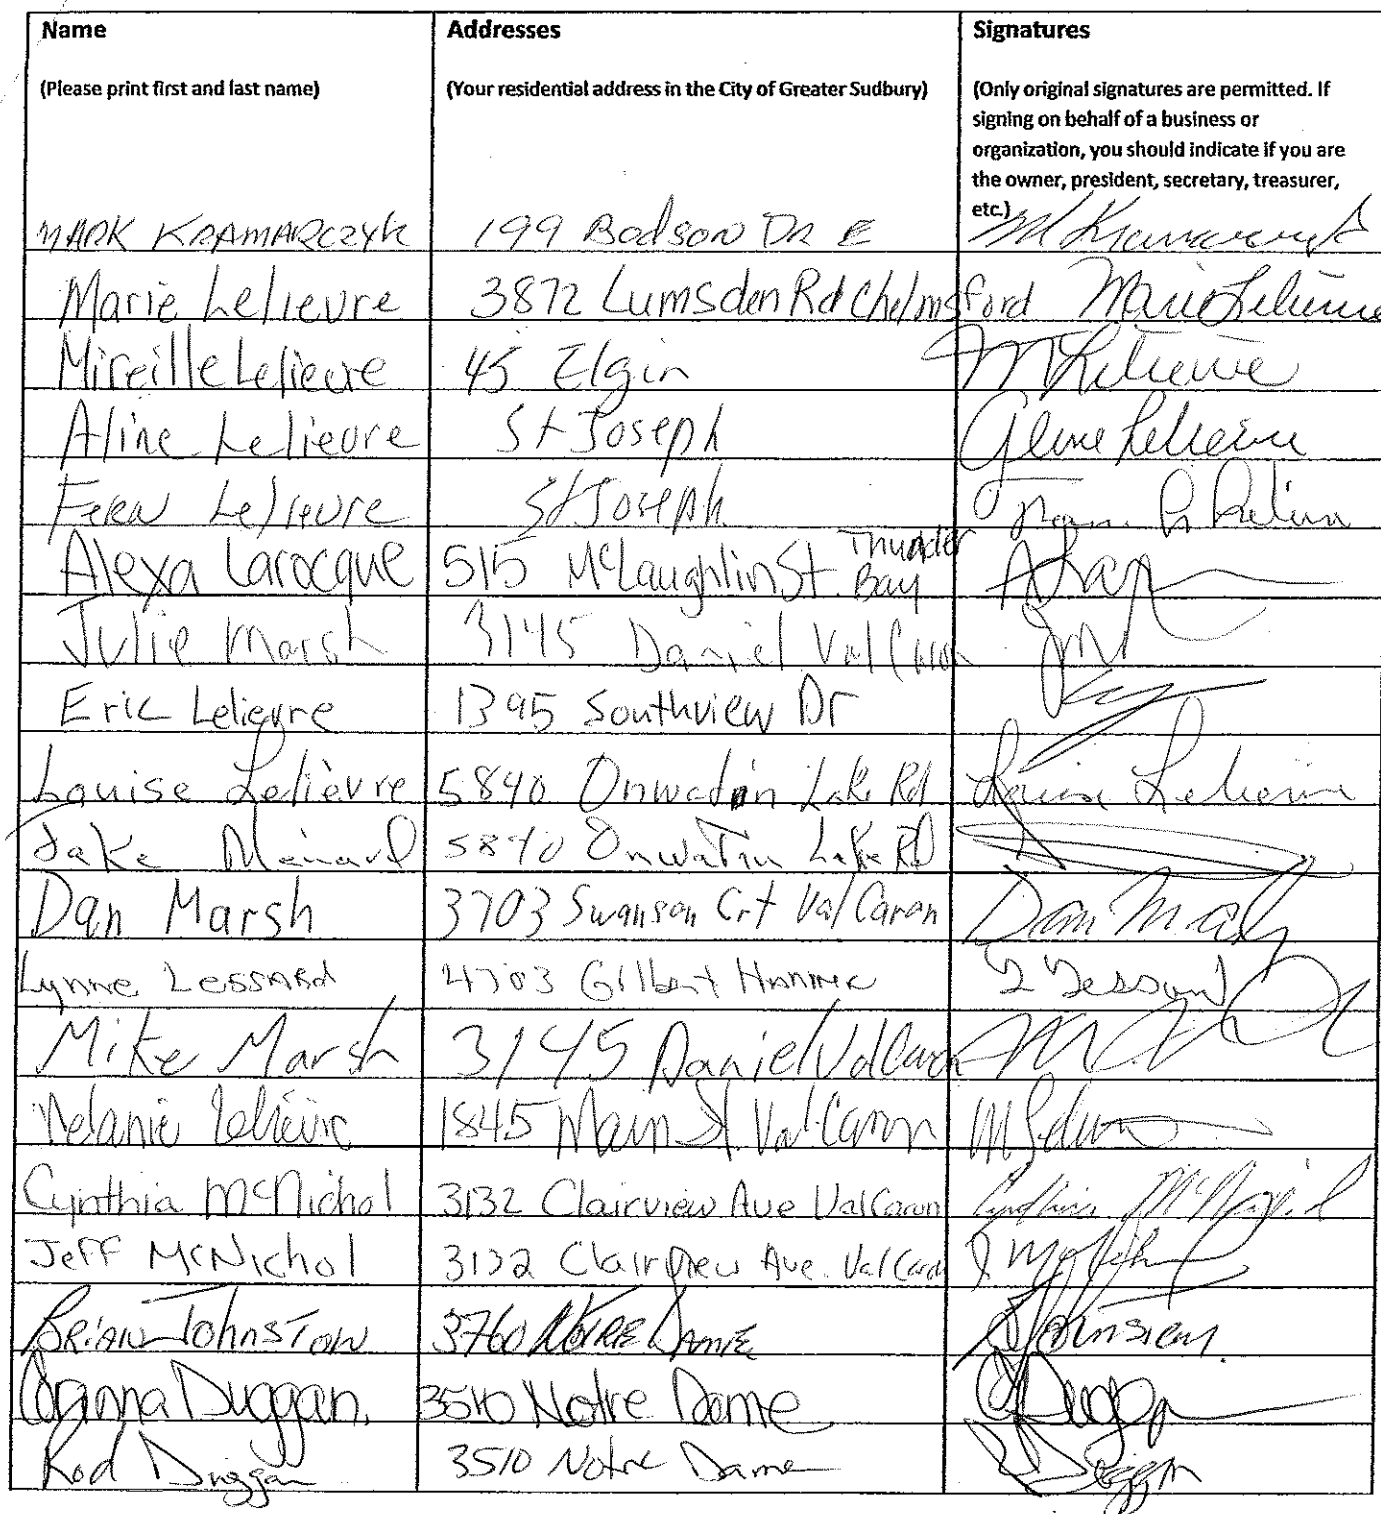 Name Addresses Signatures
(Please print first and last name) (Your residential address in the City of Greater Sudbury) (Only original signatures are permitted. If
signing on behalf of a business or
organization, you should indicate if you are
the owner, president, secretary, treasurer,
etc.)
MARK KRAMARCZYK 199 Bodson DR E
Marie Lelievre 3872 Lumsden Rd Chelmsford Marie Lelievre
Mireille Lelievre 45 Elgin M Lelievre
Aline Lelievre St Joseph Aline Lelievre
Fern Lelievre St Joseph
Alexa Larocque 515 McLaughlin St. Thunder Bay
Julie Marsh 3145 Daniel Val Caron
Eric Lelievre 1395 Southview Dr
Louise Lelièvre 5840 Onwatin Lake Rd Louise Lelievre
Jake Menard 5840 Onwatin Lake Rd
Dan Marsh 3703 Swanson Crt Val Caron Dan Marsh
Lynne Lessard 4703 Gilbert Hanmer L Lessard
Mike Marsh 3145 Daniel Val Caron
Melanie Lelièvre 1845 Main St Val Caron
Cynthia McNichol 3132 Clairview Ave Val Caron Cynthia McNichol
Jeff McNichol 3132 Clairview Ave. Val Caron J McNichol
BRIAN JOHNSTON 3760 NOTRE DAME
Duggan. 3510 Notre Dame Duggan
Rod Duggan 3510 Notre Dame R Duggan